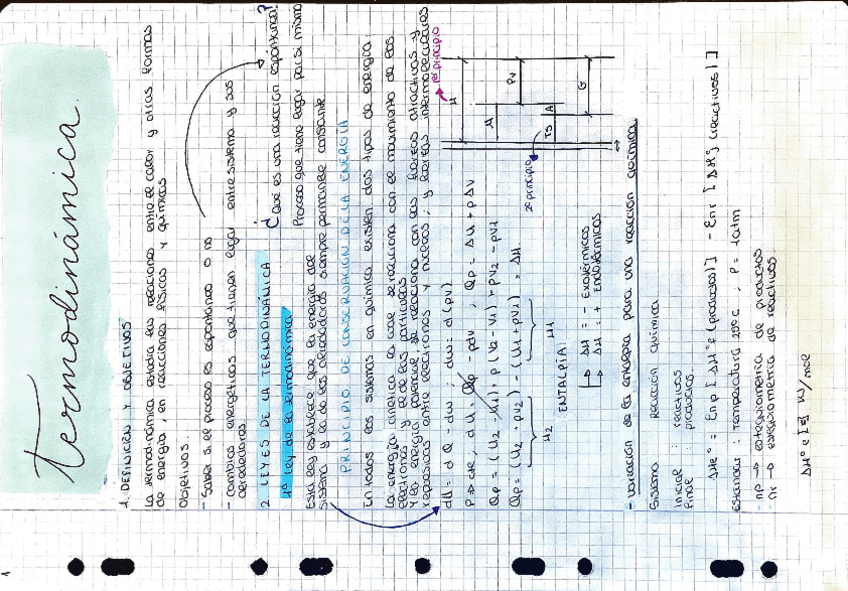 1
termodinámica.
1. DEFINICIÓN Y OBJETIVOS
La termodinámica estudia las relaciones entre el calor y otras formas
de energía, en reacciones físicas y químicas
Objetivos.
- Saber si el proceso es espontáneo o no
- cambios energéticos que tienen lugar entre sistema y sus
alrededores.
¿Qué es una reacción espontánea?
Proceso que tiene lugar por si mismo
2. LEYES DE LA TERMODINÁMICA
1ª Ley de la termodinámica
Esta ley establece que la energía del
sistema y la de los alrededores siempre permanece constante
PRINCIPIO DE CONSERVACIÓN DE LA ENERGÍA
En todos los sistemas en química existen dos tipos de energía:
La energía cinética la cual se relaciona con el movimiento de los
electrones y el de las partículas
Y la energía potencial, se relaciona con las fuerzas atractivas y
repulsivas entre electrones y núcleos; y fuerzas intermoleculares
dU = dQ - dw ; dw = d(pv)
P → cte, dU = Qp - pdv ; Qp = ΔU + pΔV
Qp = (U2 - U1) + p(V2 - V1) + pV2 - pV1
Qp = (U2 + pV2) - (U1 + pV1) = ΔH
H2 H1
1er principio
U
H
PV
TS
A
G
2º principio
ENTALPÍA
ΔH = - Exotérmicos
ΔH = + Endotérmicos
- variación de la entalpía para una reacción química
Sistema Reacción química
Inicial : reactivos
Final : productos
ΔHr° = Σnp [ΔH°f (productos)] - Σnr [ΔH°f (reactivos)]
Estándar : temperatura 25°C , P = 1atm
- np → estequiometria de productos
- nr → estequiometria de reactivos.